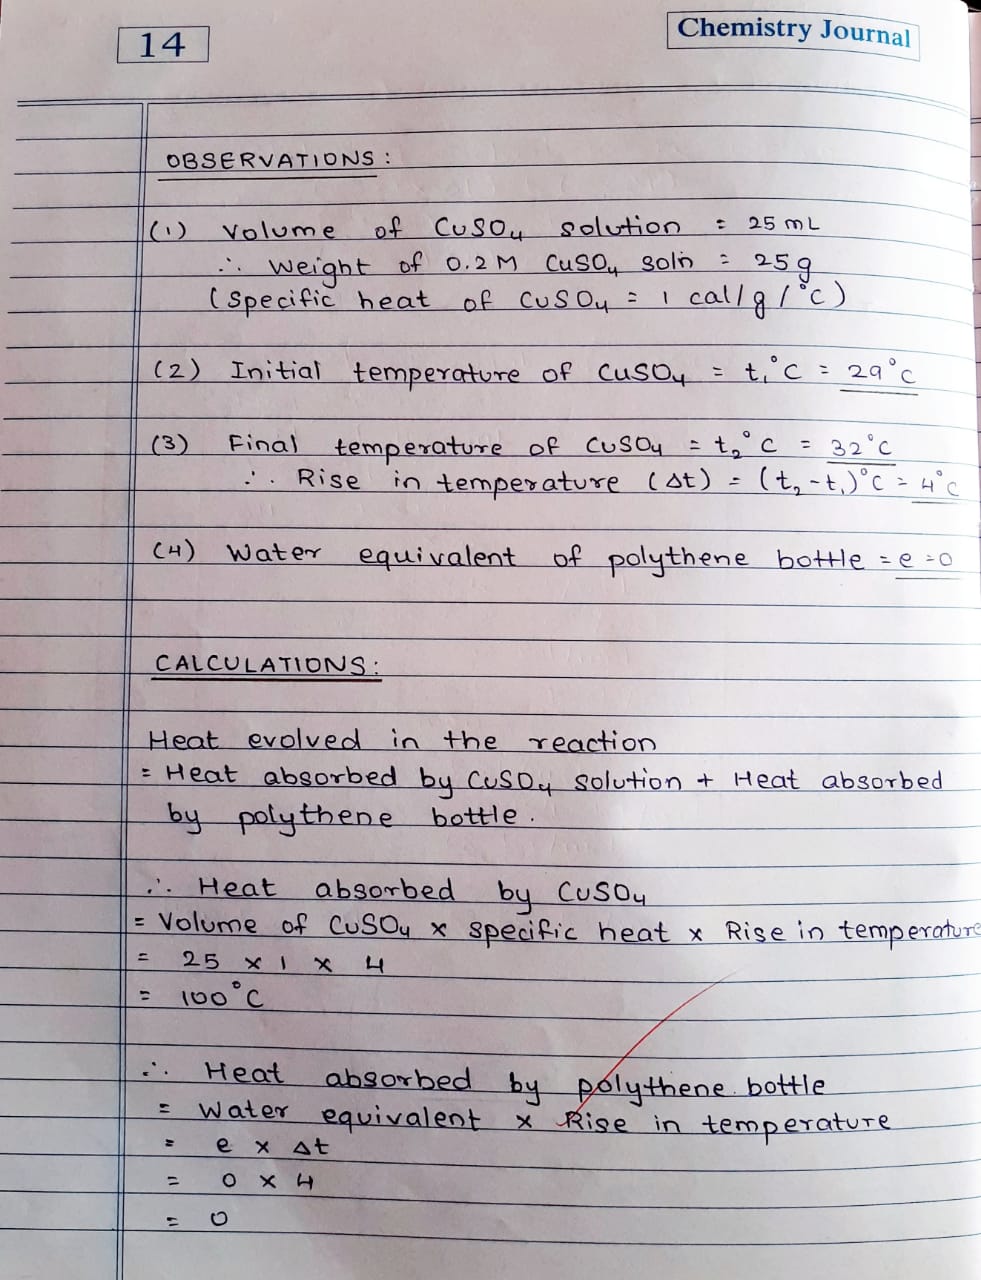 14
Chemistry Journal
OBSERVATIONS :
(1) Volume of CuSO₄ solution = 25 mL
∴ Weight of 0.2 M CuSO₄ soln = 25 g
(Specific heat of CuSO₄ = 1 cal/g/°C)
(2) Initial temperature of CuSO₄ = t₁°C = 29°C
(3) Final temperature of CuSO₄ = t₂°C = 32°C
∴ Rise in temperature (Δt) = (t₂-t₁)°C = 4°C
(4) Water equivalent of polythene bottle = e = 0
CALCULATIONS :
Heat evolved in the reaction
= Heat absorbed by CuSO₄ solution + Heat absorbed
by polythene bottle.
∴ Heat absorbed by CuSO₄
= Volume of CuSO₄ x specific heat x Rise in temperature
= 25 x 1 x 4
= 100°C
∴ Heat absorbed by polythene bottle
= Water equivalent x Rise in temperature
= e x Δt
= 0 x 4
= 0